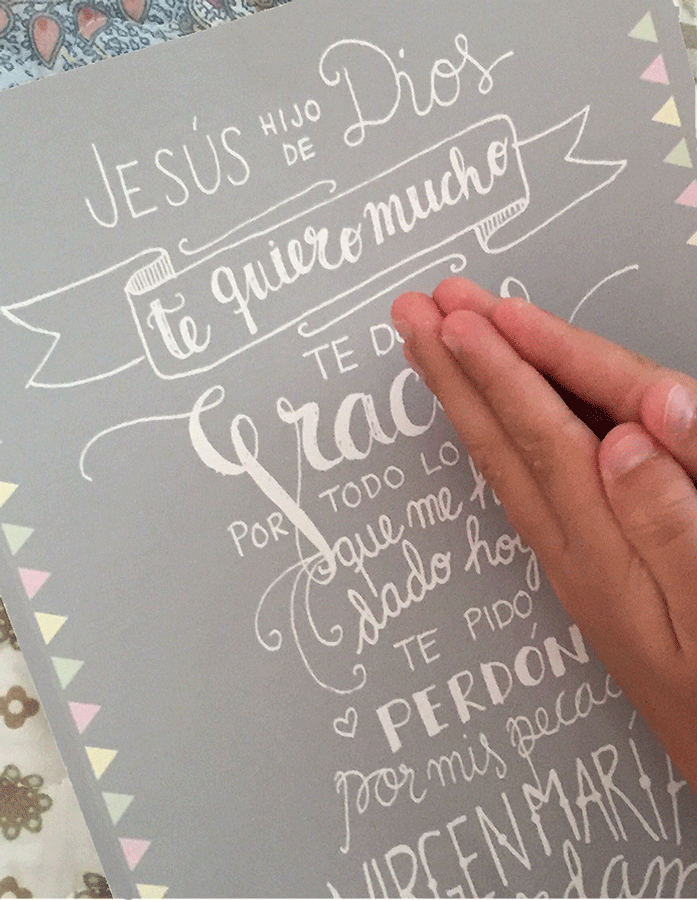 JESÚS HIJO DE Dios
te quiero mucho
TE
POR TODO LO
que me
dado hoy
TE PIDO
PERDÓN
por mis
VIRGEN MARÍA